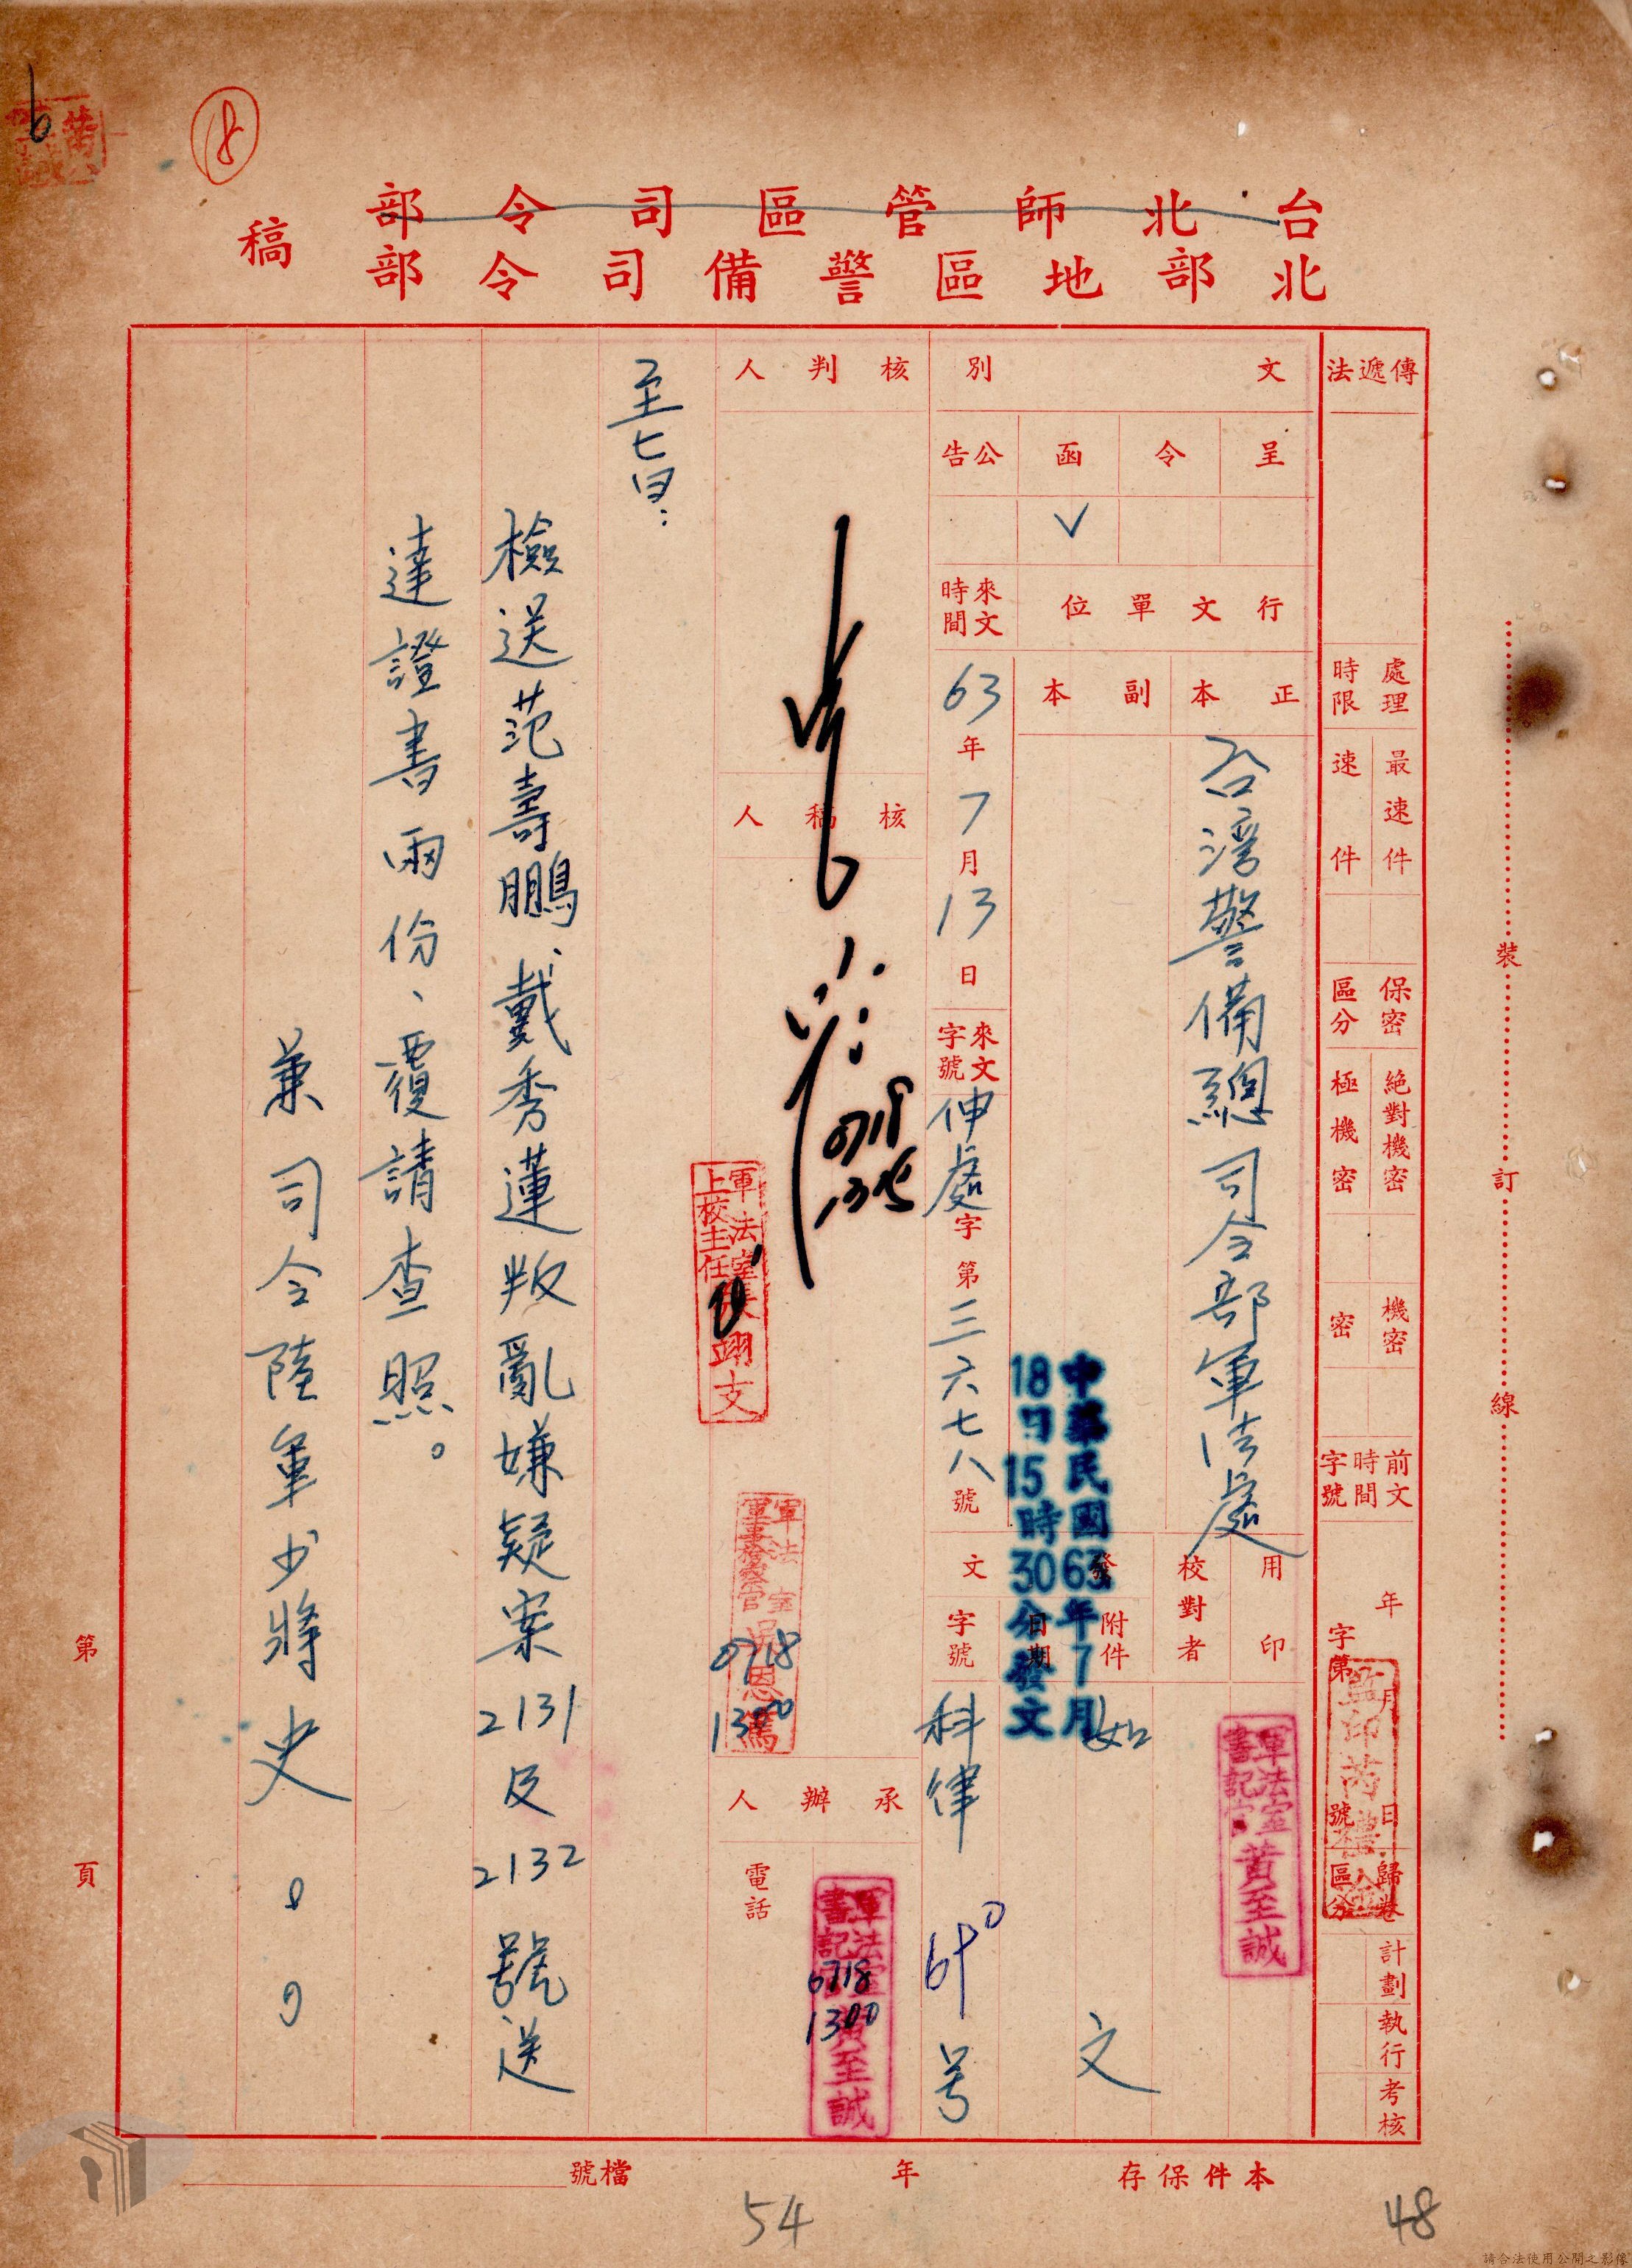 ⑧
台北師管區司令部
北部地區警備司令部
稿
傳遞法
處理時限
最速件
速件
保密區分
絕對機密
極機密
機密
密
前文時間字號
年
月
日
字第
號
歸卷區分
計劃
執行
考核
文別
呈
令
函
公告
V
行文單位
正本
副本
台灣警備總司令部軍法處
來文時間
63年7月13日
來文字號
字第三六七八號
用印
校對者
發文
附件
如文
日期
中華民國63年7月
18日15時30分發文
字號
科律
号
軍法室
書記官
黃至誠
核判人
核稿人
0718
軍法室
上校主任
張翊文
軍法室
軍事檢察官
0718
1300
承辦人
電話
軍法室
書記官
黃至誠
0718
1300
檢送范壽鵬、戴秀蓮叛亂嫌疑案2131及2132號送
達證書兩份、覆請查照。
兼司令陸軍少將史。。
裝
訂
線
第
頁
本件保存
年
檔號
54
48
請合法使用公開之影像